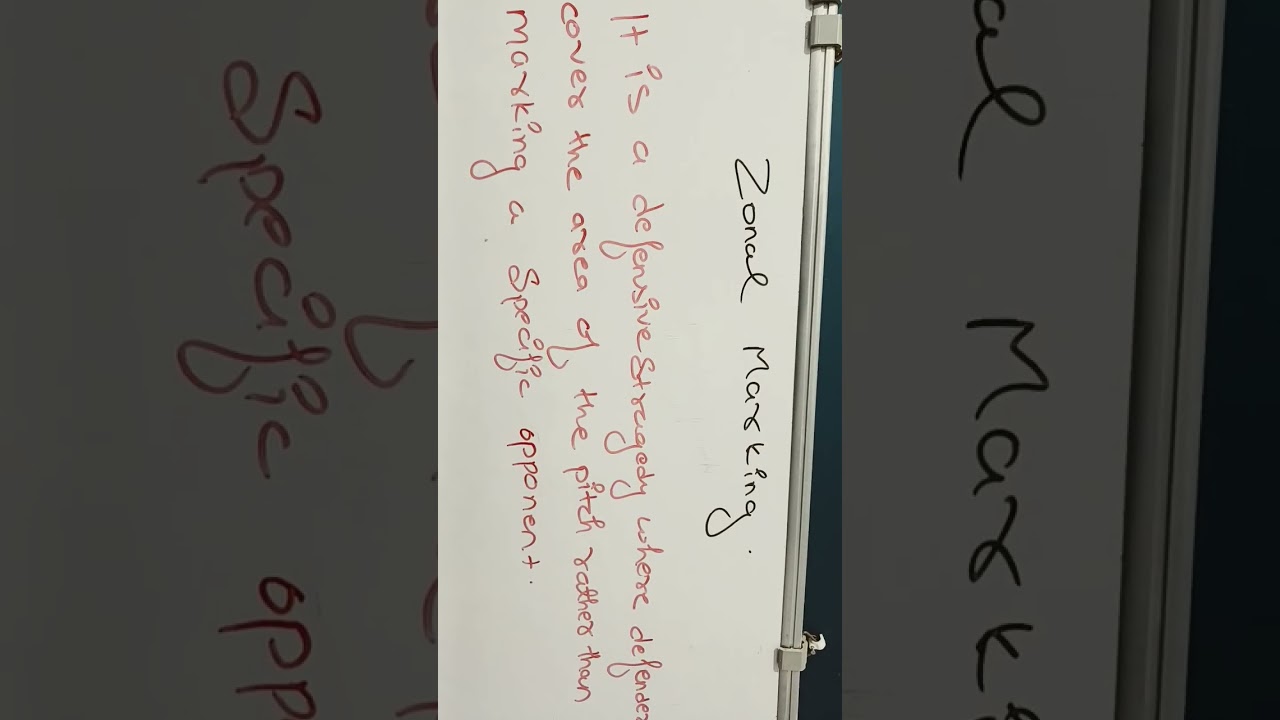 Zonal Marking.
It is a defensive stragedy where defender
cover the area of the pitch rather than
marking a specific opponent.